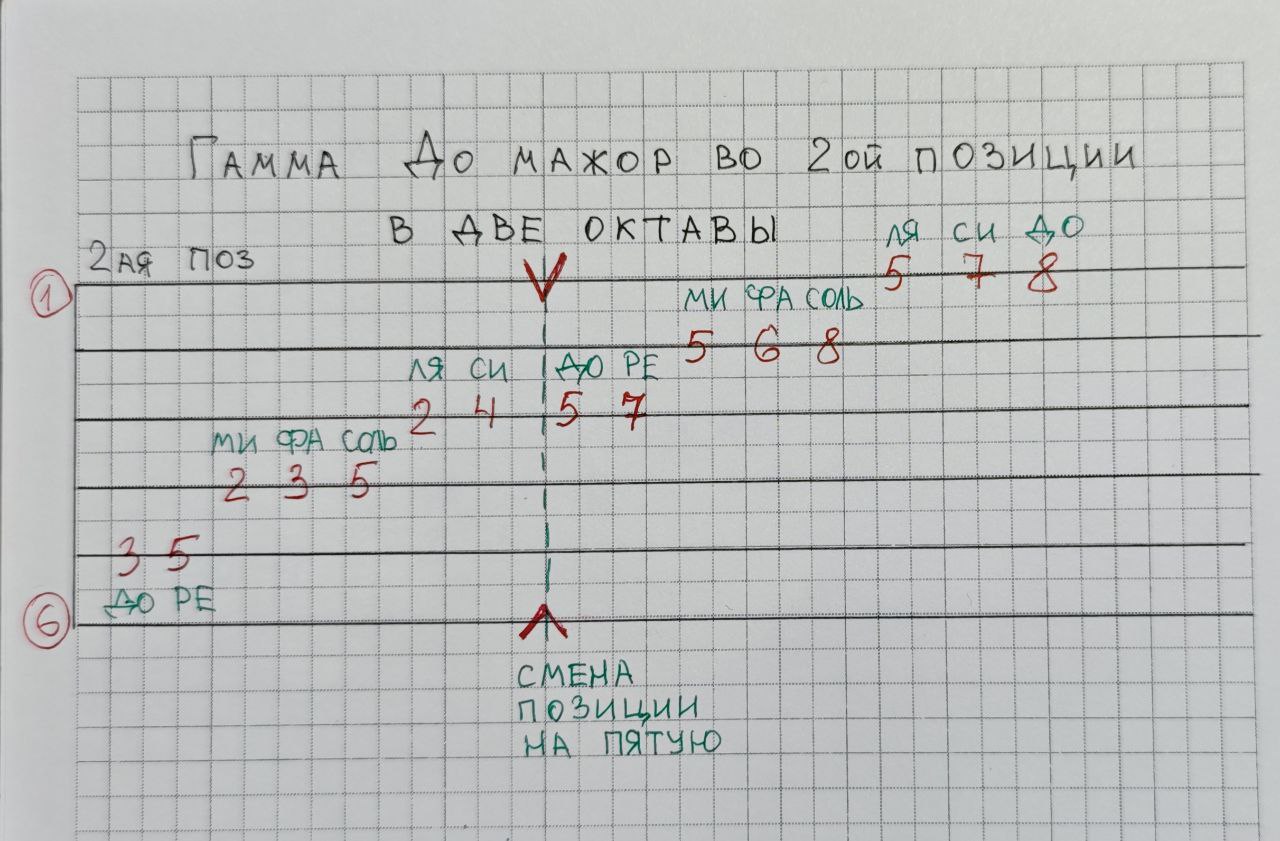 Гамма До мажор во 2ой позиции
в две октавы
2ая поз
ля си до
1 5 7 8
ми фа соль
5 6 8
ля си до ре
2 4 5 7
ми фа соль
2 3 5
3 5
до ре
6
смена
позиции
на пятую